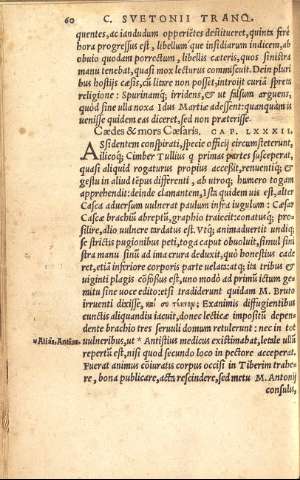 60 C. SVETONII TRANQ.
quentes, ac iandudum opperiẽtes destitueret, quinta ferè
hora progressus est, libellumq́ue insidiarum indicem, ab
obuio quodam porrectum, libellis cæteris, quos sinistra
manu tenebat, quasi mox lecturus commiscuit. Dein pluri
bus hostijs cæsis, cũ litare non posset, introijt curiã spreta
religione: Spurinamq́; irridens, et ut falsum arguens,
quòd sine ulla noxa Idus Martiæ adessent: quanquam is
uenisse quidem eas diceret, sed non præterisse.
Cædes & mors Cæsaris. CAP. LXXXII.
ASsidentem conspirati, specie officij circumsteterunt,
ilicoq́; Cimber Tullius q́ primas partes susceperat,
quasi aliquid rogaturus propius accessit, renuentiq́; &
gestu in aliud tẽpus differenti, ab utroq; humero togam
apprehendit: deinde clamantem, Ista quidem uis est, alter
Casca aduersum uulnerat paulum infra iugulum: Cæsar
Cascæ brachiũ abreptũ, graphio traiecit: conatusq́; pro-
silire, alio uulnere tardatus est. Vtq́; animaduertit undiq;
se strictis pugionibus peti, toga caput obuoluit, simul sini
stra manu sinũ ad ima crura deduxit, quò honestius cade
ret, etiã inferiore corporis parte uelata: atq; ita tribus &
uiginti plagis cõfossus est, uno modò ad primũ ictum ge-
mitu sine uoce edito: etsi tradiderunt quidam M. Bruto
irruenti dixisse, καὶ συ τέκνον; Exanimis diffugientibus
cunctis aliquandiu iacuit, donec lecticæ impositũ depen-
dente brachio tres seruuli domum retulerunt: nec in tot
*Aliâs, Antius. uulneribus, ut * Antistius medicus existimabat, letale ullũ
repertũ est, nisi quod secundo loco in pectore acceperat.
Fuerat animus cõiuratis corpus occisi in Tiberim trahe-
re, bona publicare, acta rescindere, sed metu M. Antonij
consulis,